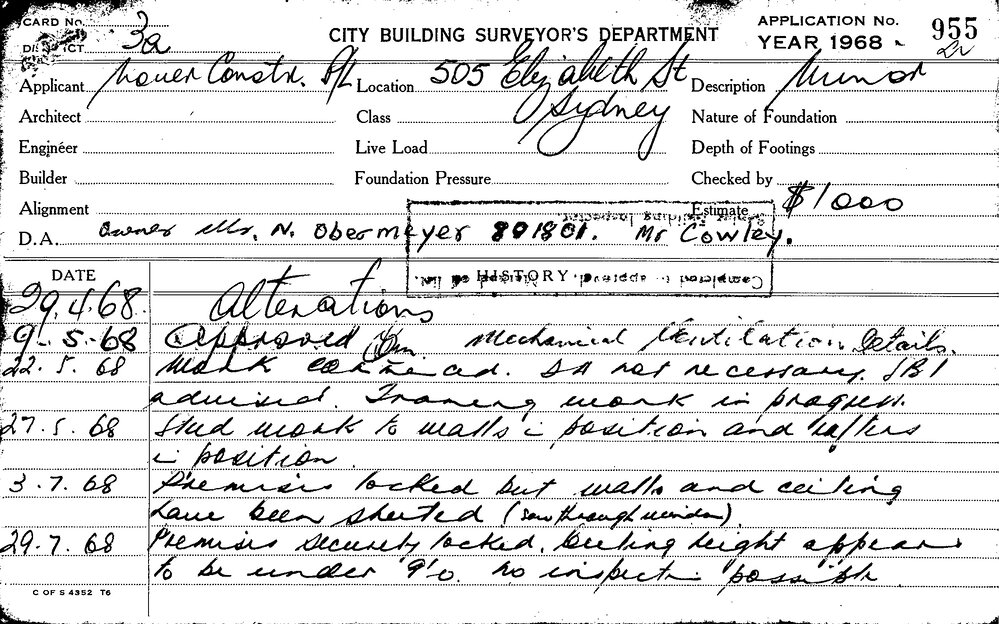 CARD No. 3a
DISTRICT
CITY BUILDING SURVEYOR'S DEPARTMENT
APPLICATION No. 955
YEAR 1968
Applicant Constr. P/L Location 505 Elizabeth St Description Minor
Architect Class Sydney Nature of Foundation
Engineer Live Load Depth of Footings
Builder Foundation Pressure Checked by
Alignment Estimate $1000
D.A. Owner Mr. N. Obermeyer 801801. Mr Cowley.
DATE HISTORY
29.4.68. Alterations
9.5.68 Approved Mechanical Ventilation Details.
22.5.68 Work commenced. DA not necessary. SBI
advised. Framing work in progress.
27.5.68 Stud work to walls in position and rafters
in position.
3.7.68 Premises locked but walls and ceiling
have been sheeted (saw through window)
29.7.68 Premises securely locked. Ceiling height appears
to be under 9'0. No inspection possible
C OF S 4352 T6